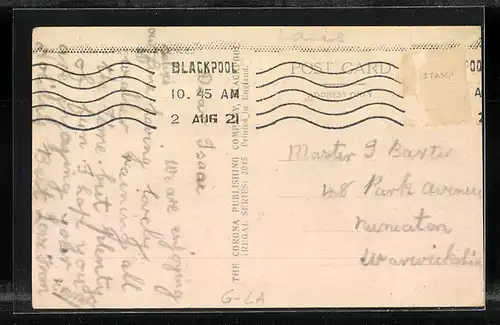 Lanc
BLACKPOOL
10.45 AM
2 AUG 21
POST CARD
ADDRESS ONLY
STAMP
THE CORONA PUBLISHING COMPANY, BLACKPOOL
(REGAL SERIES) 2045 Printed in England.
Dear Isaac
We are enjoying
are having lovely
weather raining all
the time but plenty
of fun I hope you
are enjoying your
Best Love from
Master I Baxter
48 Park Avenue
Nuneaton
Warwickshire
G-LA